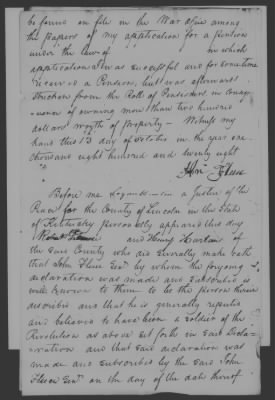 be found on file in the War office among
the papers of my application for a pension
under the law of in which
application I was successful and for some time
received a Pension, but was afterward
stricken from the Roll of Pensioners in consequ
-ence of owning more than two hundred
dollars worth of property — Witness my
hand this 13 day of October in the year one
thousand eight hundred and twenty eight
John
Before me a Justice of the
Peace for the County of Lincoln in the State
of Kentucky personally appeared this day
and Henry of
the said County who did severally make oath
that John Senr by whom the foregoing
declaration was made and subscribed is
well known to them to be the person therein
described and that he is generally reputed
and believed to have been a soldier of the
Revolution as above set forth in said Decla-
-ration and that said declaration was
made and subscribed by the said John
Senr on the day of the date thereof